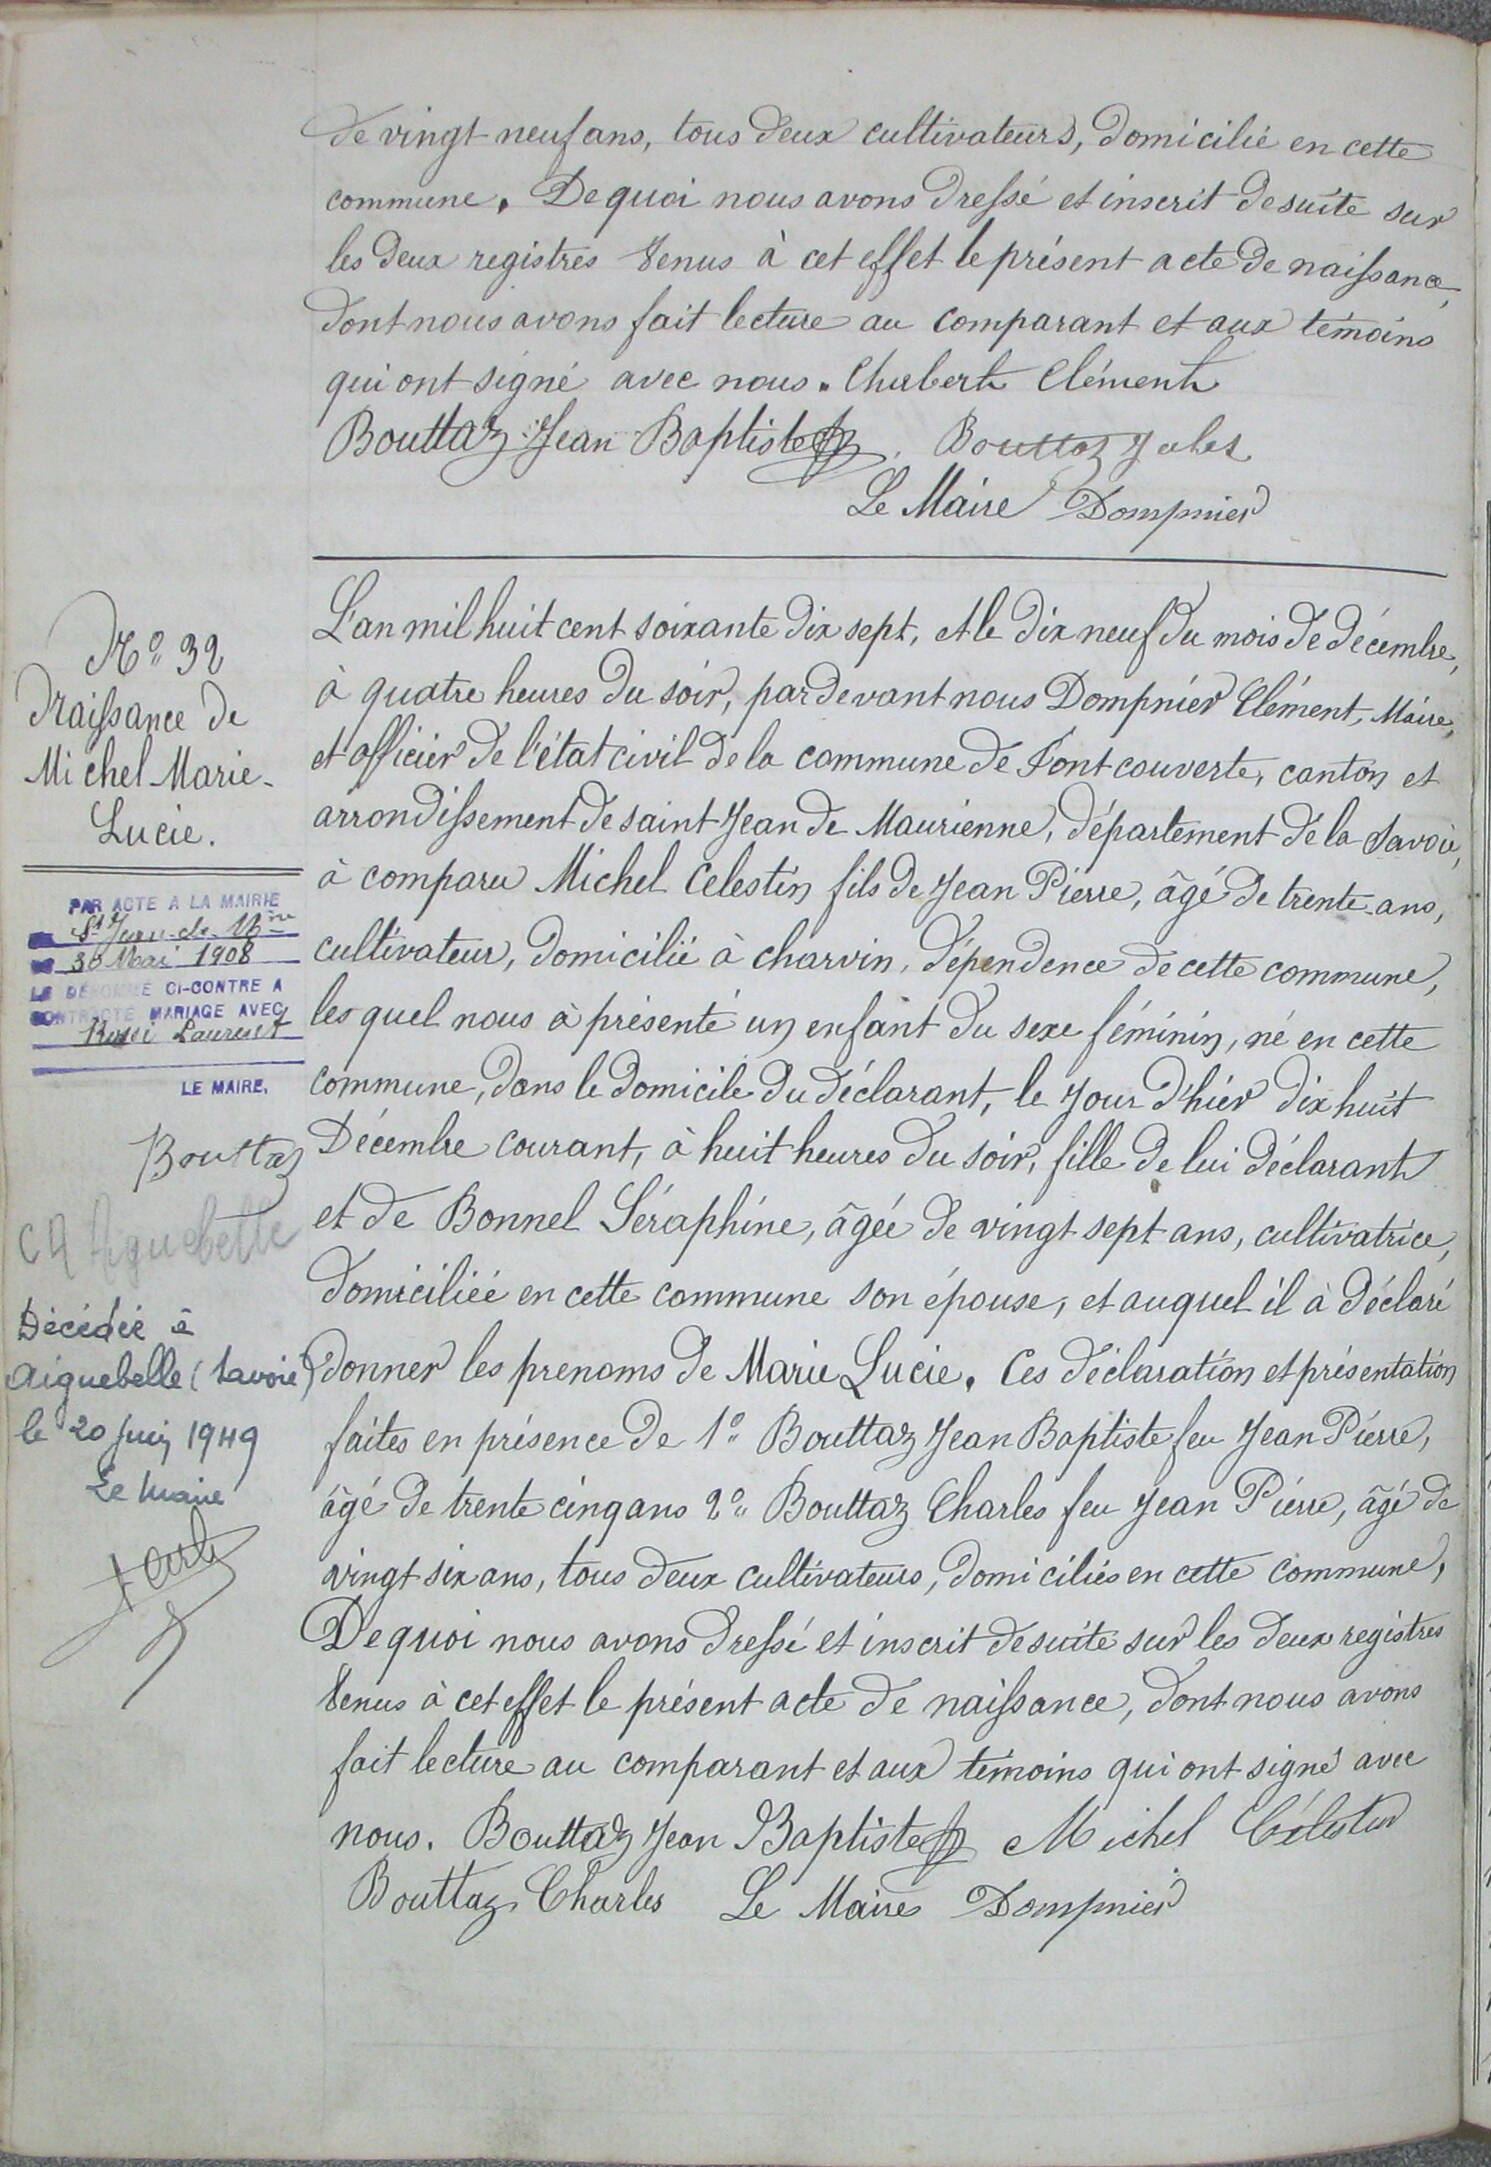 de vingt neuf ans, tous deux cultivateurs, domicilié en cette
commune. De quoi nous avons dressé et inscrit de suite sur
les deux registres tenus à cet effet le présent acte de naissance,
dont nous avons fait lecture au comparant et aux témoins
qui ont signé avec nous. Chubert Clément
Bouttaz Jean Baptiste. Bouttaz Jules
Le Maire Dompnier
N° 32
Naissance de
Michel Marie-
Lucie.
PAR ACTE A LA MAIRIE
St Jean-de-M
30 Mai 1908
LE DÉNOMMÉ CI-CONTRE A
CONTRACTÉ MARIAGE AVEC
Rossi Laurent
LE MAIRE,
Bouttaz
Aiguebelle
Décédée à
Aiguebelle (Savoie)
le 20 Juin 1949
Le Maire
L'an mil huit cent soixante dix sept, et le dix neuf du mois de décembre,
à quatre heures du soir, par devant nous Dompnier Clément, Maire,
et officier de l'état civil de la commune de Fontcouverte, canton et
arrondissement de saint Jean de Maurienne, département de la Savoie,
à comparu Michel Celestin fils de Jean Pierre, âgé de trente-ans,
cultivateur, domicilié à charvin, dépendence de cette commune,
les quel nous à présenté un enfant du sexe féminin, né en cette
commune, dans le domicile du déclarant, le jour d'hier dix huit
Décembre courant, à huit heures du soir, fille de lui déclarant
et de Bonnel Séraphine, âgée de vingt sept ans, cultivatrice,
domiciliée en cette commune son épouse, et auquel il à déclaré
donner les prenoms de Marie Lucie. Ces déclaration et présentation
faites en présence de 1° Bouttaz Jean Baptiste feu Jean Pierre,
âgé de trente cinq ans 2° Bouttaz Charles feu Jean Pierre, âgé de
vingt six ans, tous deux cultivateurs, domiciliés en cette commune,
De quoi nous avons dressé et inscrit de suite sur les deux registres
tenus à cet effet le présent acte de naissance, dont nous avons
fait lecture au comparant et aux témoins qui ont signé avec
nous. Bouttaz Jean Baptiste Michel Célestin
Bouttaz Charles Le Maire Dompnier